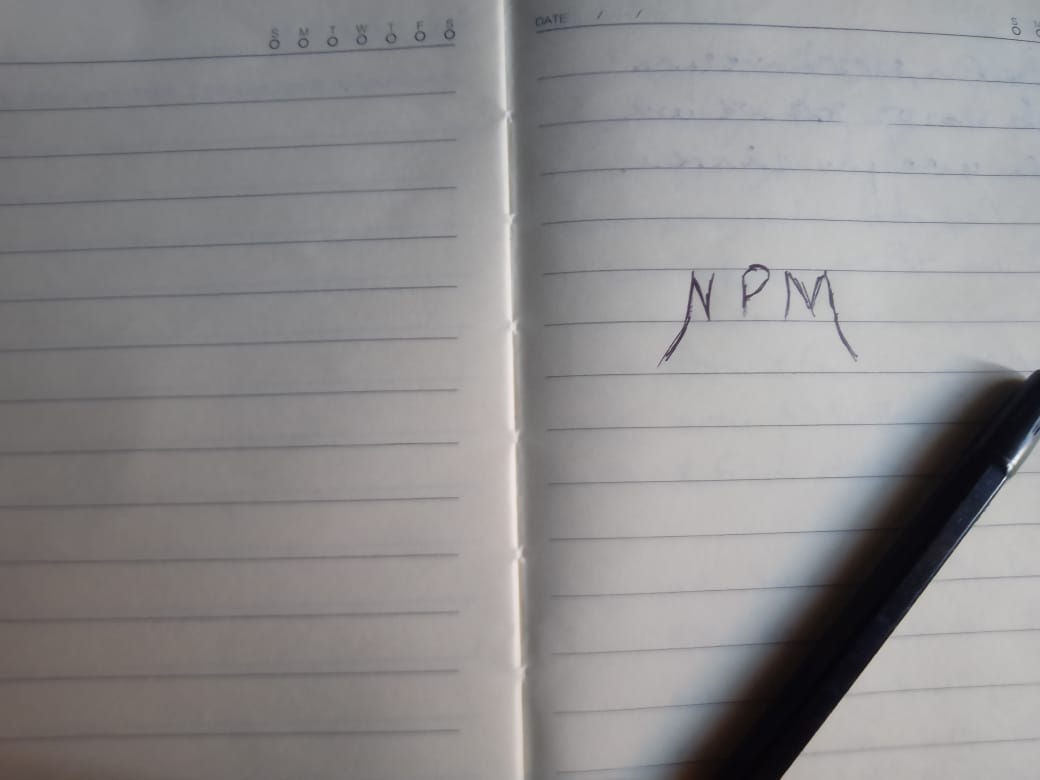 S M T W T F S
DATE / / S
NPM